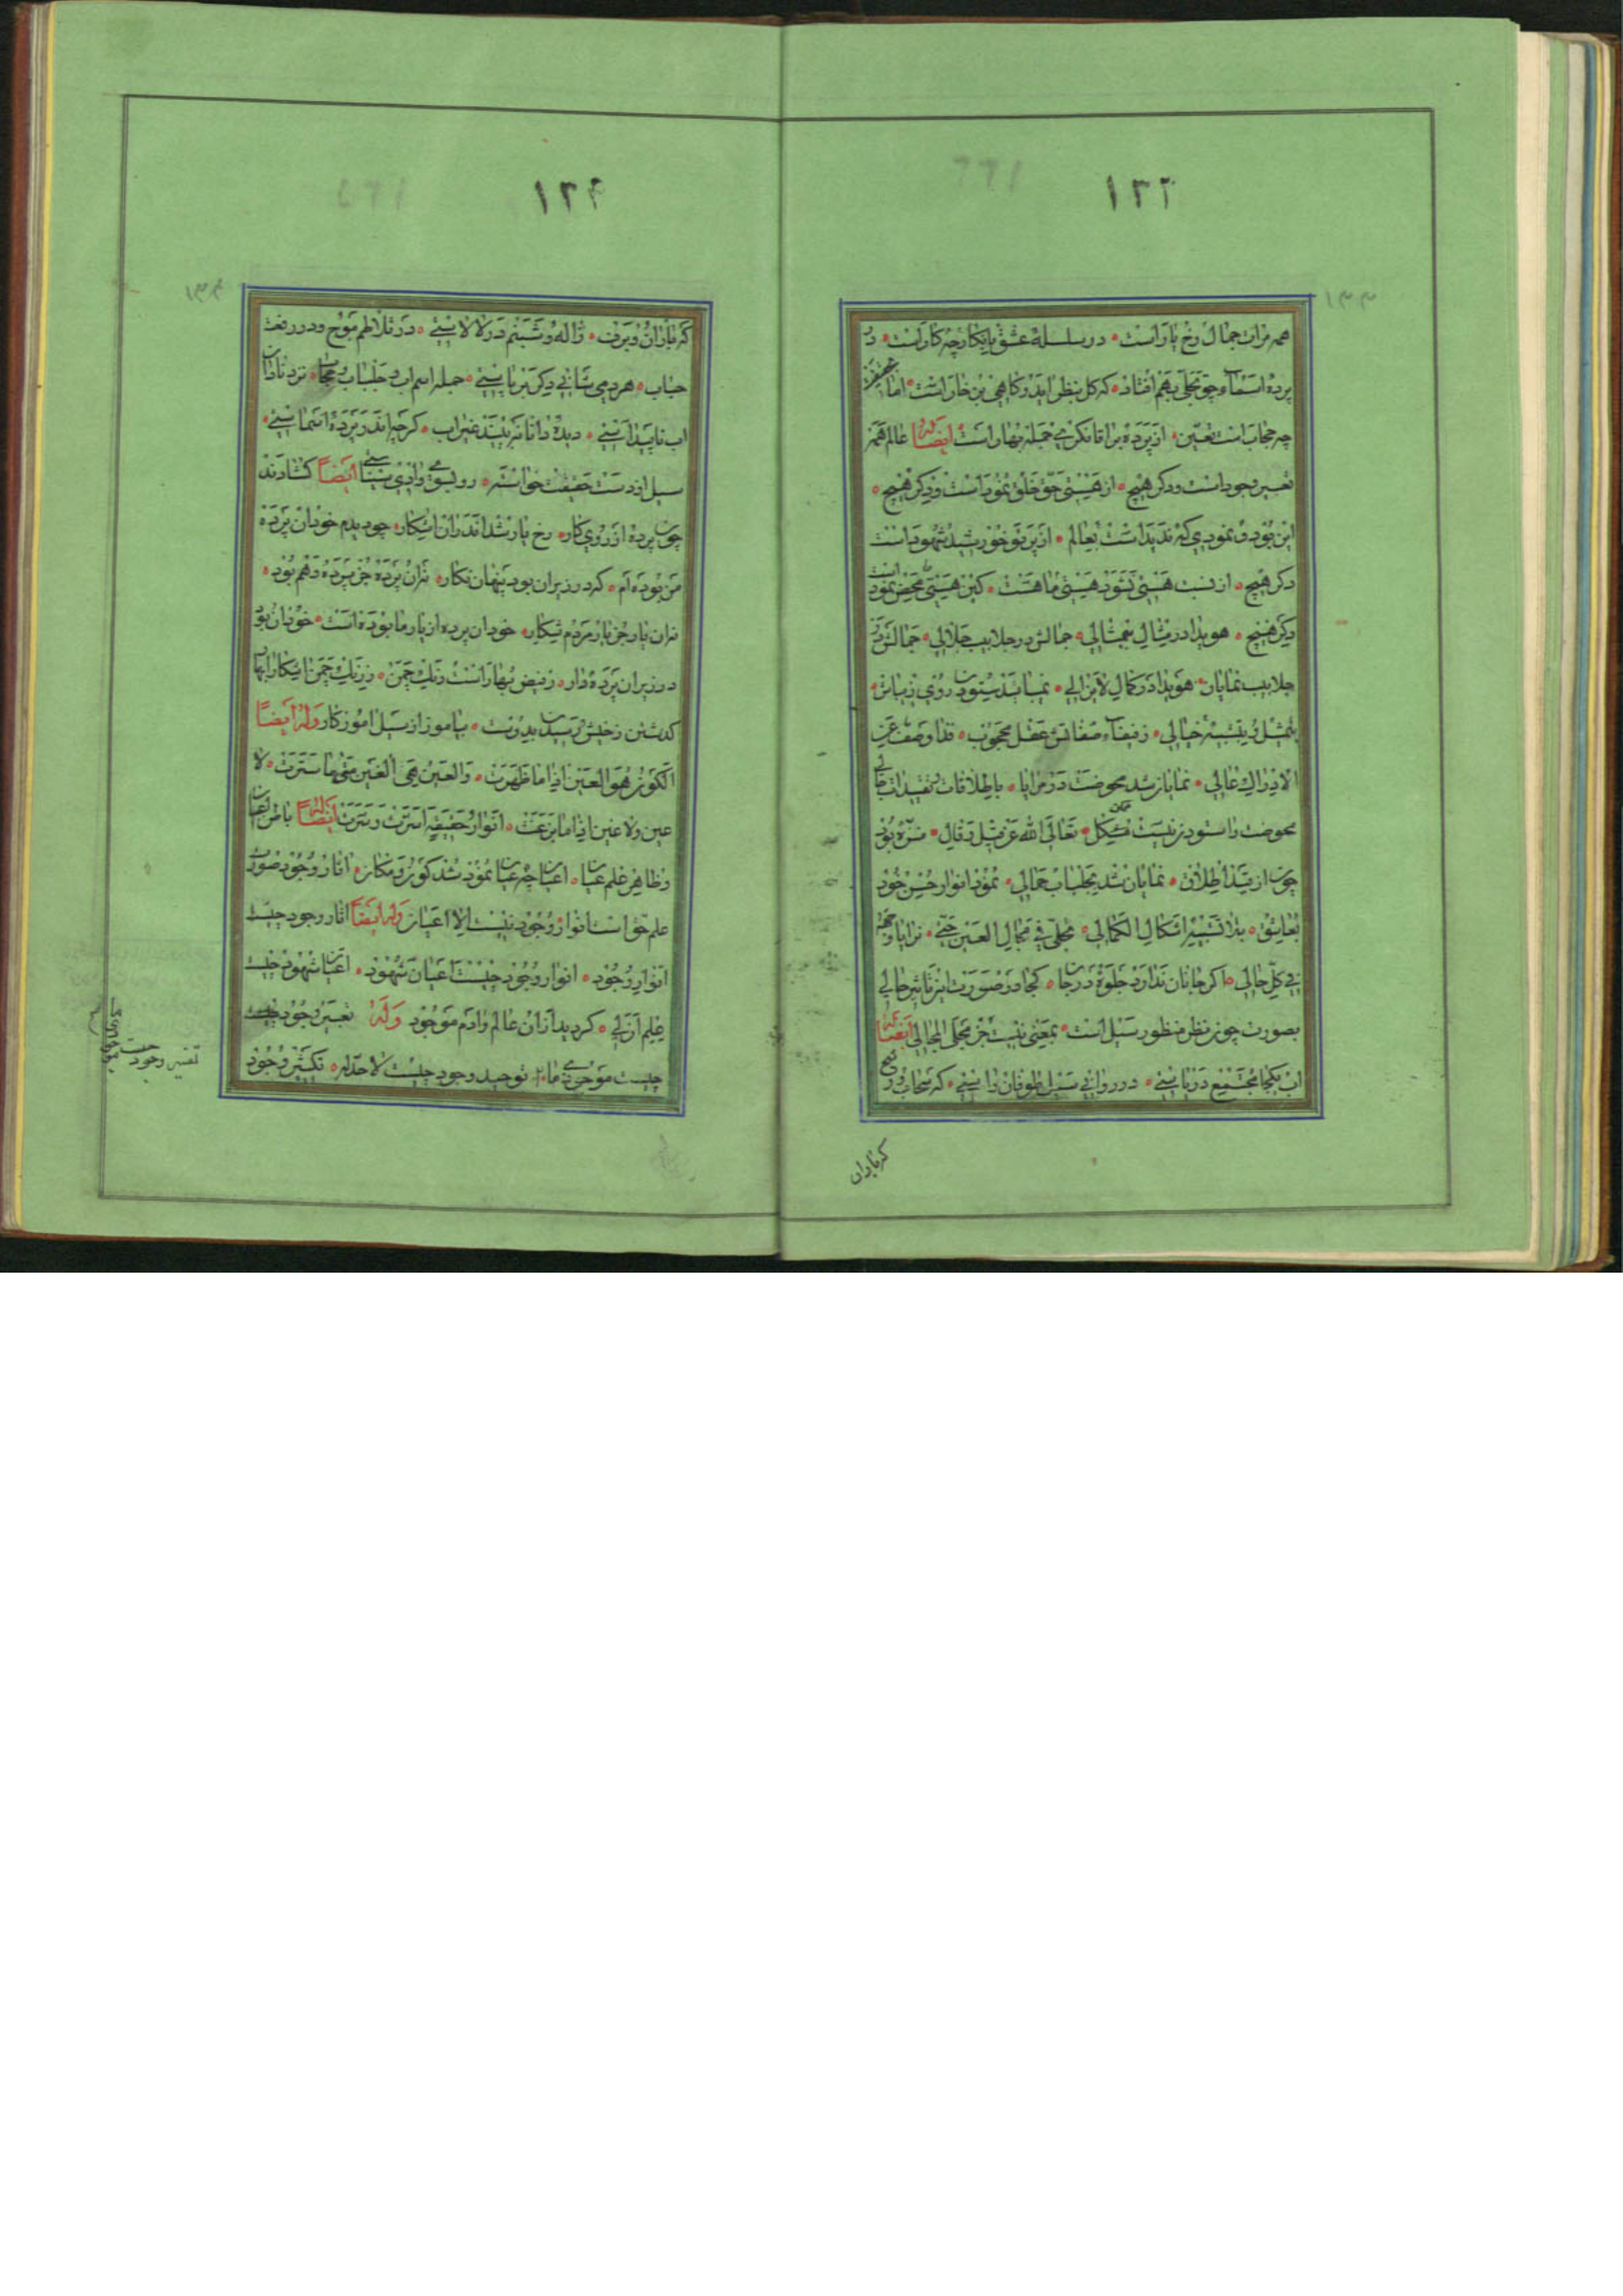 ۱۳۳
همه مرات جمال رخ یار است در سلسلهٔ عشق بایکار چه کار است در
پردهٔ اسماء چو تجلی بهم افتاد که کل بنظر اید و کاهی بن خار است اما
چه حجاب است تعین از پرده برا تا نکری جمله بهار است وله ایضا عالم همه
تعبیر وجود است و دکر هیچ از هستی حق خلق نمود است و دکر هیچ
این بود و نمودی که ندید است بعالم از پرتو خورشید شهود است
دکر هیچ از نسبت هستی نشود هستی ما هست کین هستی محض نمود است
دکر هیچ هویدا در مثال بیمثالی جمالش در جلابیب جلالی جمالش در
جلابیب نمایان هویدا در کمال لایزالی نمیباشد ستودن روی زیباش
بتمثیل و بتشبیه خیالی صفاتش عقل محجوب فذا وصف عن
الادراك عالی نمایان شد محوضت در مرایا باطلاقات و تقییدات حالی
محوضت را ستودن نیست ممکن مشکل تعالی الله عن قیل و قال منزه بود
چون از قید اطلاق نمایان شد بجلباب جمالی نمود انوار حسن خود
بعاشق تجلی فی مجال العین حتی
فی کل حالی اکر جانان ندارد جلوه در جان کجا در صورت این تاثیر حالی
بصورت چون نظر منظور سیل است بمعنی نیست جز مجلی المجالی وله ایضا
اب یکجا مجتمع در یا ببینی در روانی سیل طوفان زا ببینی که سحاب و
که باران
۱۳۴
که باران و برف و ژاله و شبنم در لالا ببینی در تلاطم موج و در رفعت
حباب هر دمی شانی دکر بر پا ببینی جمله اسم اب و جلباب و حجاب نزد نادان
اب ناپیدا ببینی دیدهٔ دانا نه بیند غیر اب کرچه اندر پردهٔ اسما ببینی
سیل از دست حقیقت خواسته رو بسوی وادی سینا ببینی ایضاً کشادند
چون پرده از روی کار رخ یار شد اندران اشکار چو دیدم خود ان پرده
من بوده ام که در زیر ان بود پنهان نکار نه ان پرده جز پرده وهم بود
نه ان یار جز یار مردم شکار خود ان پرده از یار ما بوده است خود ان بود
در زیر ان پرده دار ز فیض بهار است رنك چمن ز رنك چمن اشکارا بهار
کذشتن ز خویش و رسیدن بدوست بیاموز از سیل اموزکار وله ایضاً
الکون هو العین اذا ما ظهرت والعین هی الغین متی ما سترت لا
عین ولا غین اذا ما بزغت انوار حقیقة اسرت وسرت وله ایضاً باطن اعیان
و ظاهر علم عیان اعیان چه عیان نمود شد کون و مکان اثار وجود صورت
علم حق است انوار وجود نیست الا اعیان وله ایضاً اثار وجود چیست
انوار وجود انوار وجود چیست اعیان شهود اعیان شهود چیست
علم ازلی کردید ازان عالم و ادم موجود وله تعبیر وجود چیست
چیست موجودی ما توحید وجود چیست لا حد له تکثیر وجود
تفسیر وجود چیست